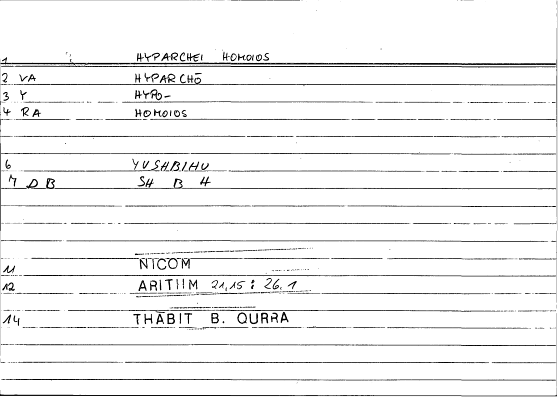 1 HYPARCHEI HOMOIOS
2 VA HYPARCHŌ
3 Y HYPO-
4 RA HOMOIOS
6 YUSHBIHU
7 DB SH B H
11 NICOM
12 ARITIIM 21,15 : 26.1
14 THĀBIT B. QURRA